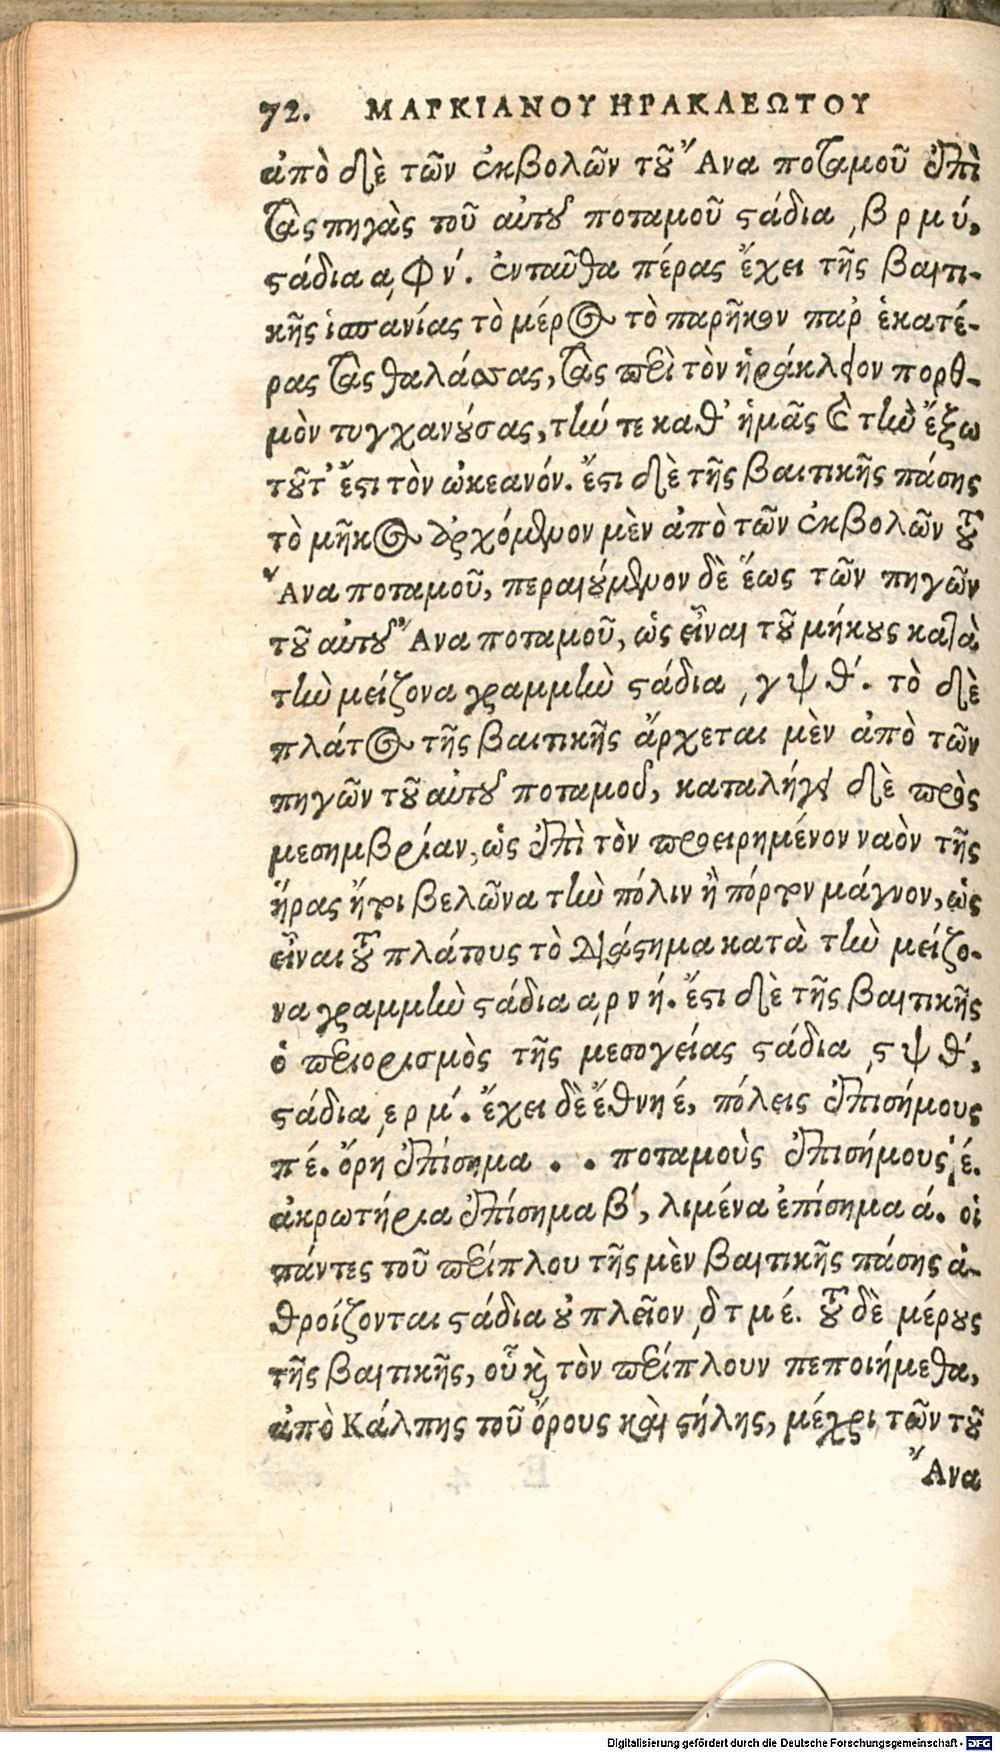 72. ΜΑΡΚΙΑΝΟΥ ΗΡΑΚΛΕΩΤΟΥ
ἀπὸ δὲ τῶν ἐκβολῶν τοῦ Ἄνα ποταμοῦ ἐπὶ
τὰς πηγὰς τοῦ αὐτοῦ ποταμοῦ στάδια ͵β ρ μ ύ,
στάδια α͵ Φ ν́. ἐνταῦθα πέρας ἔχει τῆς βαιτι-
κῆς ἱσπανίας τὸ μέρος τὸ παρῆκον παρ' ἑκατέ-
ρας τὰς θαλάσσας, τὰς περὶ τὸν ἡράκλειον πορθ-
μὸν τυγχανούσας, τήν τε καθ' ἡμᾶς καὶ τὴν ἔξω
τοῦτ' ἔστι τὸν ὠκεανόν. ἔστι δὲ τῆς βαιτικῆς πάσης
τὸ μῆκος ἀρχόμενον μὲν ἀπὸ τῶν ἐκβολῶν τοῦ
Ἄνα ποταμοῦ, περαιούμενον δὲ ἕως τῶν πηγῶν
τοῦ αὐτοῦ Ἄνα ποταμοῦ, ὡς εἶναι τοῦ μήκους κατὰ
τὴν μείζονα γραμμὴν στάδια ͵γ ψ θ́. τὸ δὲ
πλάτος τῆς βαιτικῆς ἄρχεται μὲν ἀπὸ τῶν
πηγῶν τοῦ αὐτοῦ ποταμοῦ, καταλήγει δὲ πρὸς
μεσημβρίαν, ὡς ἐπὶ τὸν προειρημένον ναὸν τῆς
ἥρας ἤτοι βελῶνα τὴν πόλιν ἢ πόρτον μάγνον, ὡς
εἶναι τοῦ πλάτους τὸ διάστημα κατὰ τὴν μείζο-
να γραμμὴν στάδια α͵ ρ ν ή. ἔστι δὲ τῆς βαιτικῆς
ὁ περιορισμὸς τῆς μεσογείας στάδια ͵ς ψ θ́,
στάδια ͵ε ρ μ́. ἔχει δὲ ἔθνη έ, πόλεις ἐπισήμους
π έ. ὄρη ἐπίσημα . . ποταμοὺς ἐπισήμους ί έ.
ἀκρωτήρια ἐπίσημα β́, λιμένα ἐπίσημα ά. οἱ
πάντες τοῦ περίπλου τῆς μὲν βαιτικῆς πάσης ἀ-
θροίζονται στάδια οὐ πλεῖον ͵δ τ μ έ. τοῦ δὲ μέρους
τῆς βαιτικῆς, οὗ καὶ τὸν περίπλουν πεποιήμεθα,
ἀπὸ Κάλπης τοῦ ὄρους καὶ στήλης, μέχρι τῶν τοῦ
Ἄνα
Digitalisierung gefördert durch die Deutsche Forschungsgemeinschaft - DFG